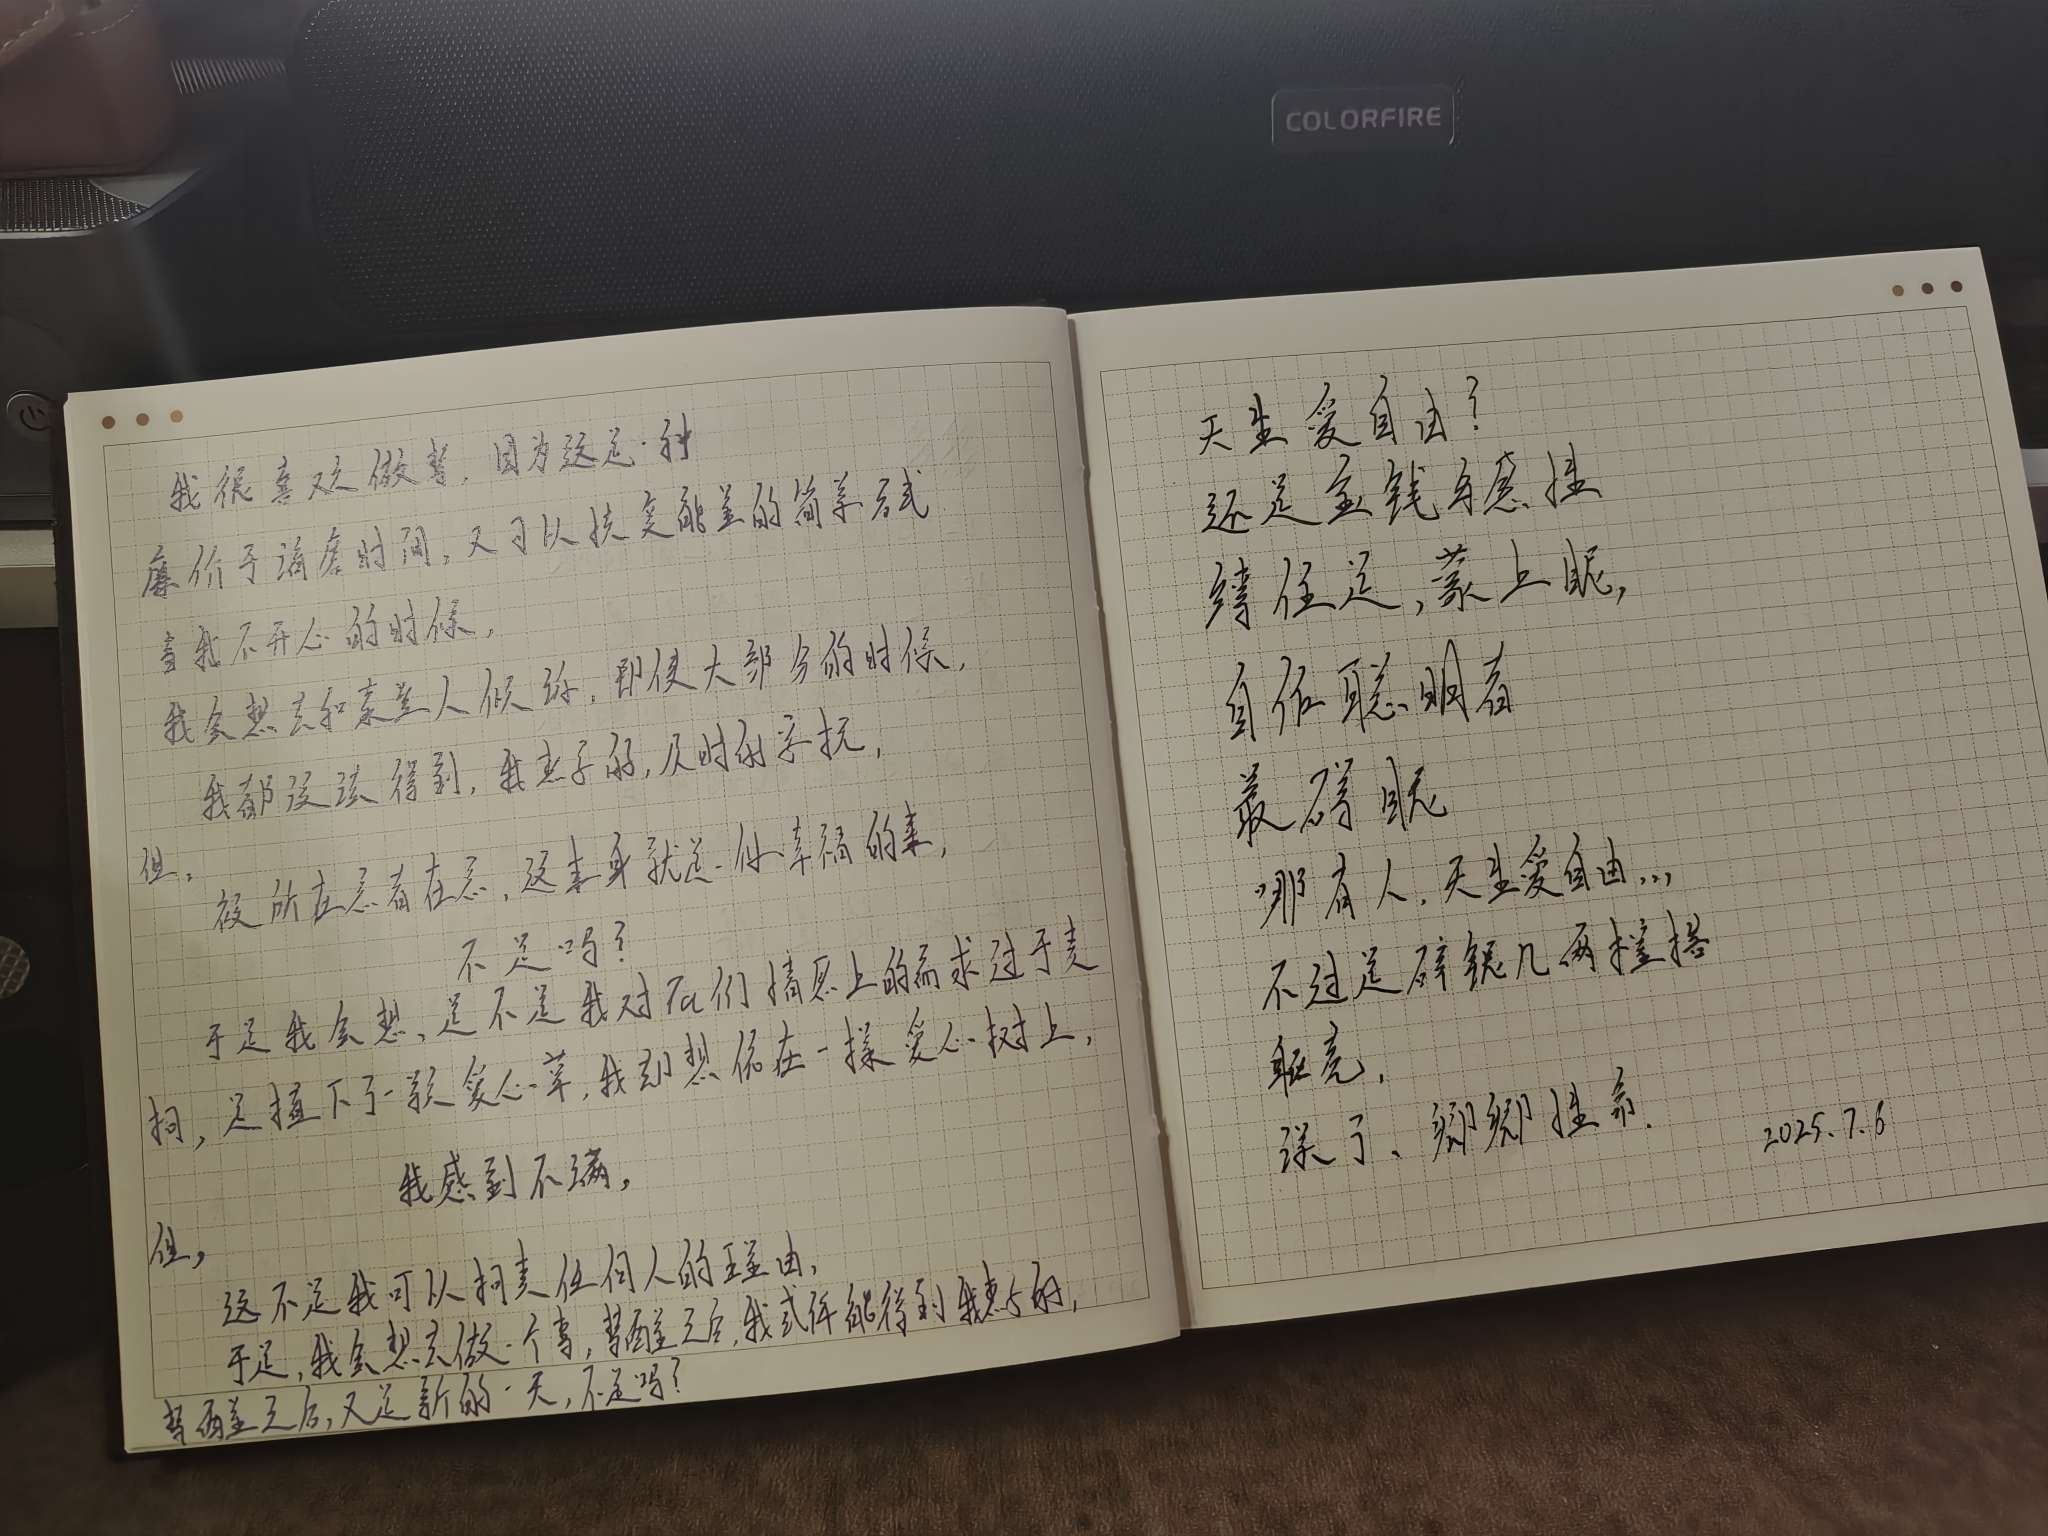 COLORFIRE
我很喜欢做梦，因为这是一种
廉价于消磨时间，又可以接受能量的简单方式
当我不开心的时候，
我会想去和某些人倾诉，即使大部分的时候，
我都没法得到，我想要的，及时的安抚，
但，
被所在意者在意，这本身就是一件幸福的事，
不是吗？
于是我会想，是不是我对他们情感上的需求过于苛
刻，是植下了一颗爱心草，我到想依在一棵爱心树上，
我感到不满，
但，
这不是我可以苛责任何人的理由，
于是，我会想去做一个梦，梦醒之后，我或许能得到我想要的，
梦醒之后，又是新的一天，不是吗？
天生爱自由？
还是金钱与德性
缚住足，蒙上眼，
自作聪明者
最碍眼
哪有人，天生爱自由...，
不过是碎银几两撞搭
躯壳，
误了、卿卿性命.
2025.7.6